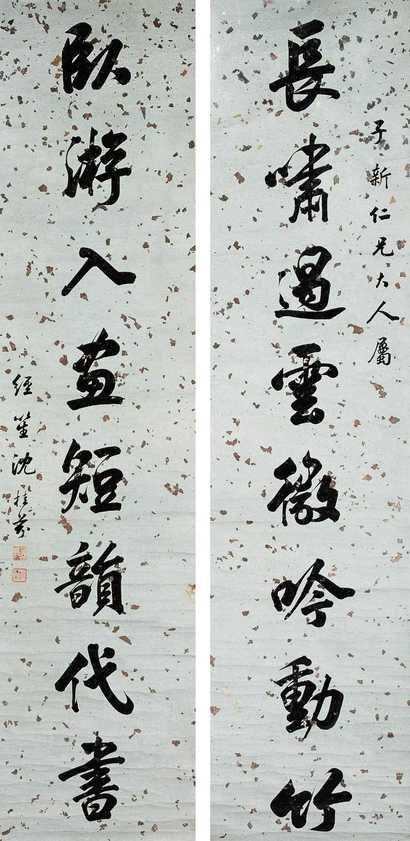 子新仁兄大人屬
長嘯遏雲微吟動竹
臥游入畫短韻代書
經笙沈桂芬